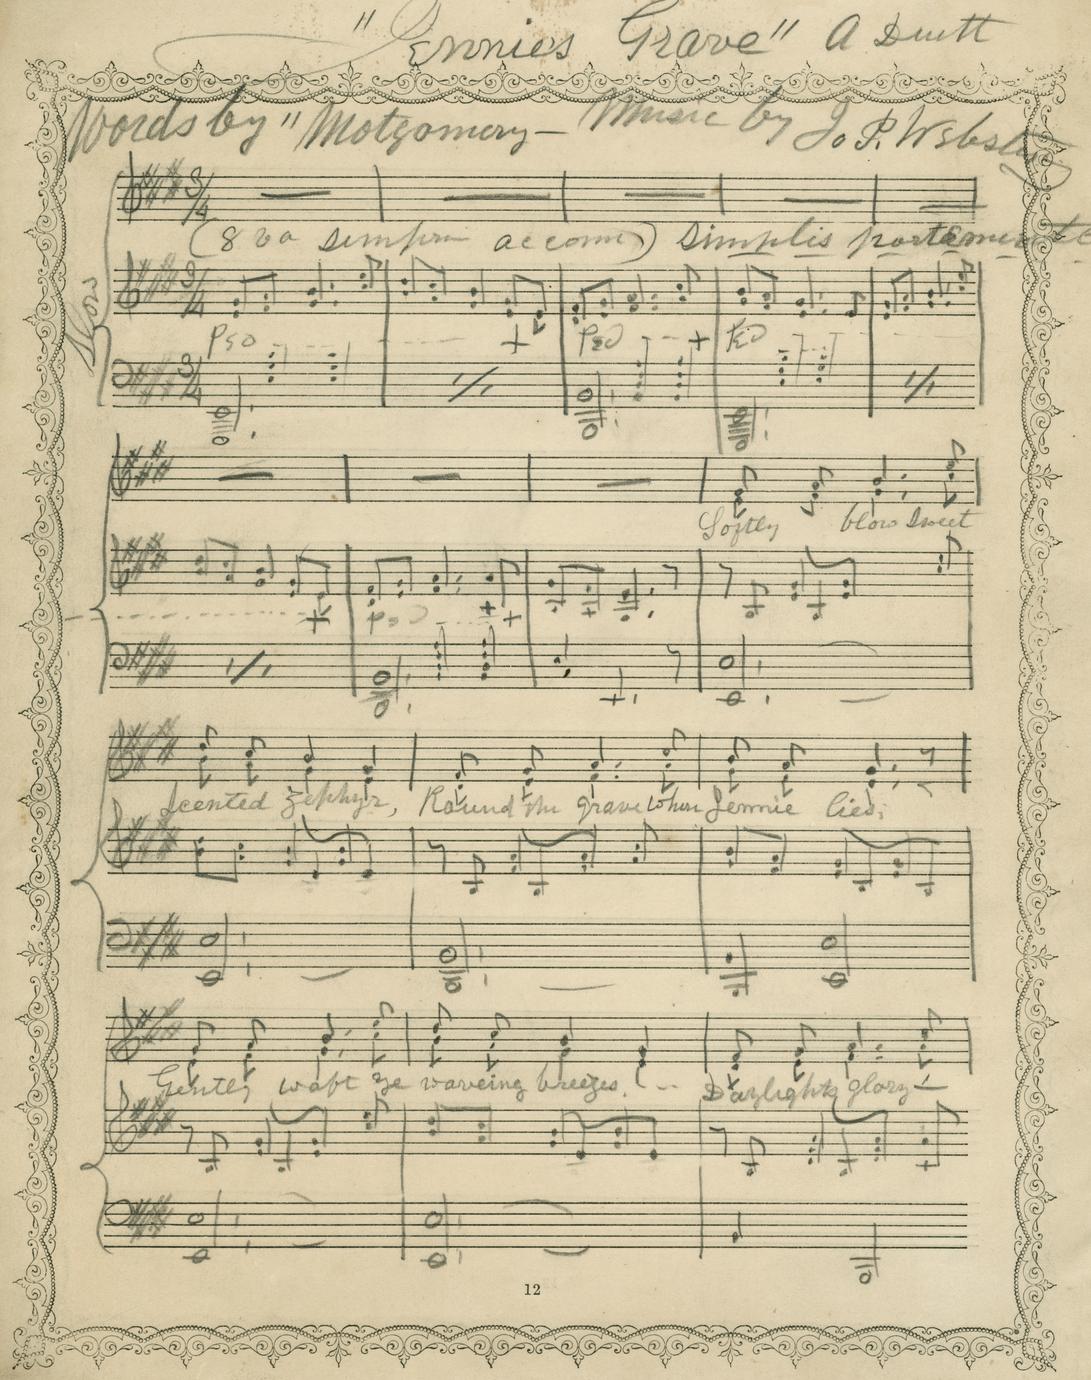 "Jennie's Grave" A Duett
Words by "Motgomery — Music by Jo P. Webster
3/4
(8 va sempre accom) Simplis portamente
Slow
3/4
Ped + Ped + Ped
3/4
Softly blow sweet
+ Ped + +
Scented Zephyrs, Round the grave wher Jennie lies;
Gently waft ye waveing breezes. Daylights glory
12